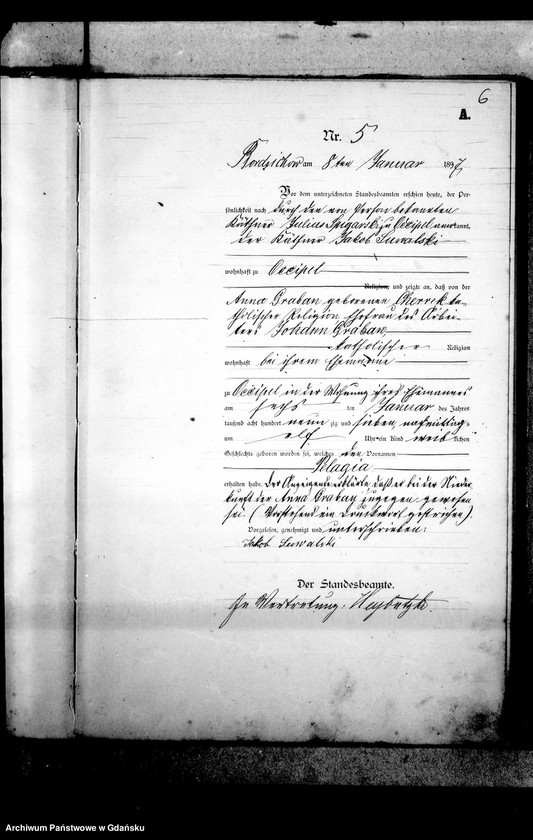 6
A.
Nr. 5
Bordzichow am 8ten Januar 1897
Vor dem unterzeichneten Standesbeamten erschien heute, der Per-
sönlichkeit nach durch den von Person bekannten
Käthner Julius zu Occipel anerkannt,
der Käthner Jakob Suwalski
wohnhaft zu Occipel
Religion, und zeigte an, daß von der
Anna Graban geborenen ka-
tholischer Religion Ehefrau des Arbei-
ters Johann Graban
katholischer Religion
wohnhaft bei ihrem Ehemanne
zu Occipel in der Wohnung ihres Ehemannes
am sechs ten Januar des Jahres
tausend acht hundert neun zig und sieben, nachmittags
um elf Uhr ein Kind weib lichen
Geschlechts geboren worden sei, welches den Vornamen
Pelagia
erhalten habe. Der Anzeigende erklärte, daß er bei der Nieder
kunft der Anna Graban zugegen gewesen
sei. (Vorstehend ein Druckwort gestrichen).
Vorgelesen, genehmigt und unterschrieben:
Jakob Suwalski
Der Standesbeamte.
In Vertretung:
Archiwum Państwowe w Gdańsku